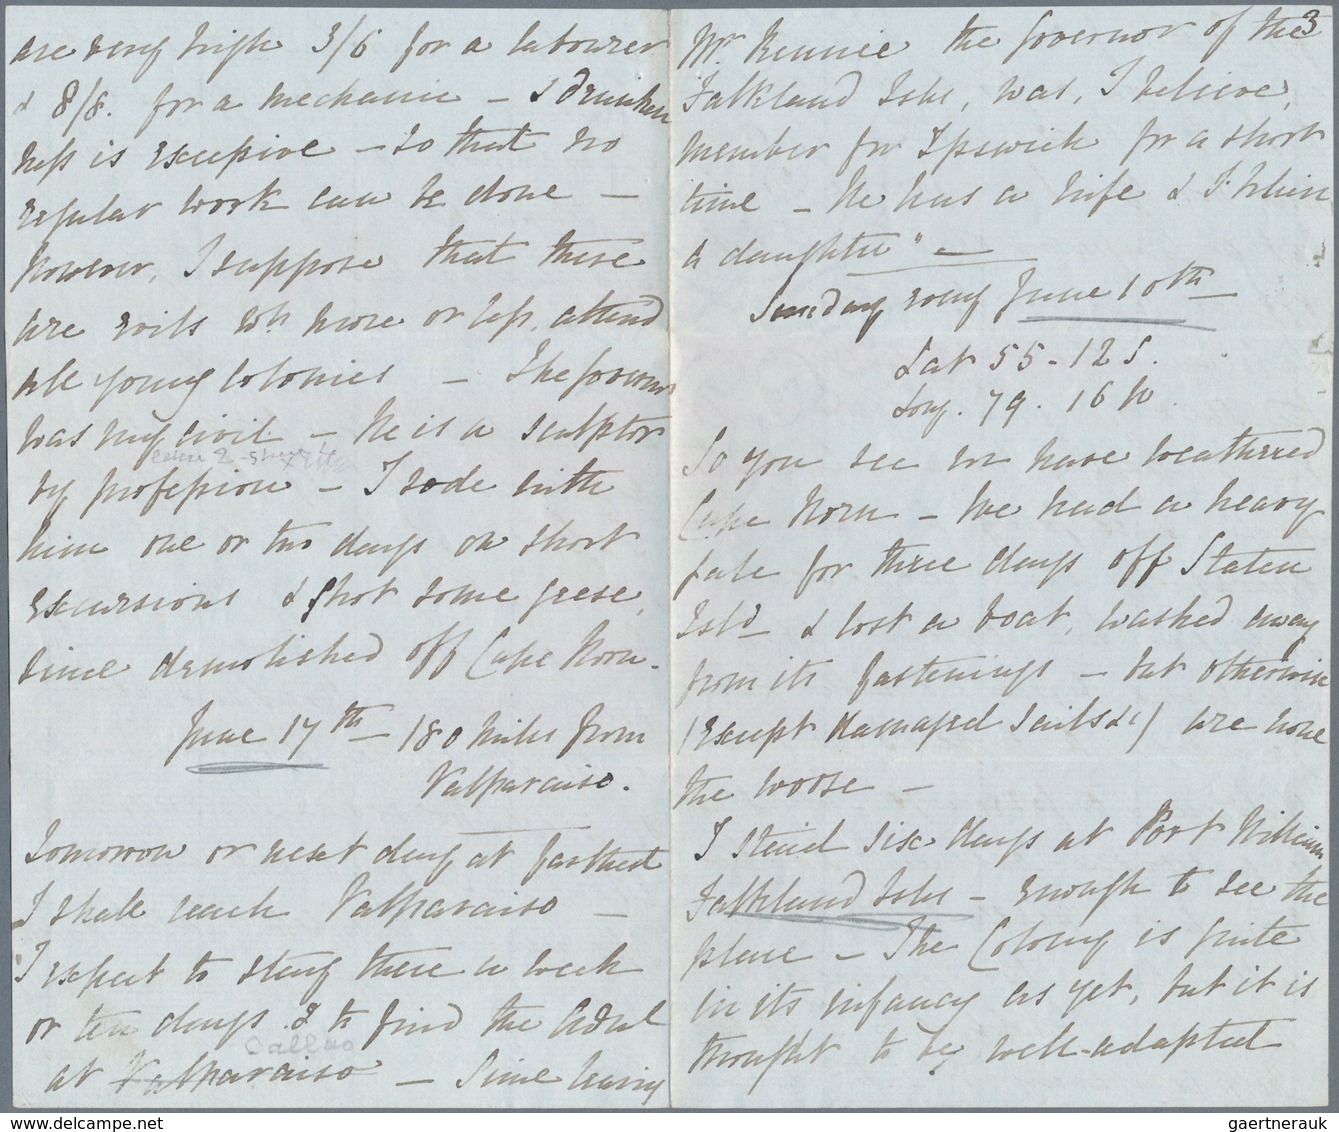 are very high 3/6 for a labourer
& 8/8. for a mechanic – & drunken
ness is excessive – so that no
regular work can be done –
however, I suppose that these
are evils wh more or less, attend
all young colonies – The Governor
was very civil – He is a sculptor
by profession – I rode with
him one or two days on short
excursions & shot some geese,
since demolished off Cape Horn.
June 17th 180 miles from
Valparaiso.
Tomorrow or next day at farthest
I shall reach Valparaiso –
I expect to stay there a week
or ten days & to find the Adml
Callao
at Valparaiso – Since leaving
3
Mr Rennie the Governor of the
Falkland Isles, was, I believe,
member for Ipswich for a short
time – He has a wife & I believe
a daughter" –
Sunday evng June 10th
Lat 55 - 12 S.
Long. 79. 16 W.
So you see we have weathered
Cape Horn – We had a heavy
gale for three days off Staten
Isld & lost a boat, washed away
from its fastenings – but otherwise
(except damaged sails &c) are none
the worse –
I staid six days at Port William
Falkland Isles – enough to see the
place – The Colony is quite
in its infancy as yet, but it is
thought to be well-adapted
gaertnerauk
www.delcampe.net